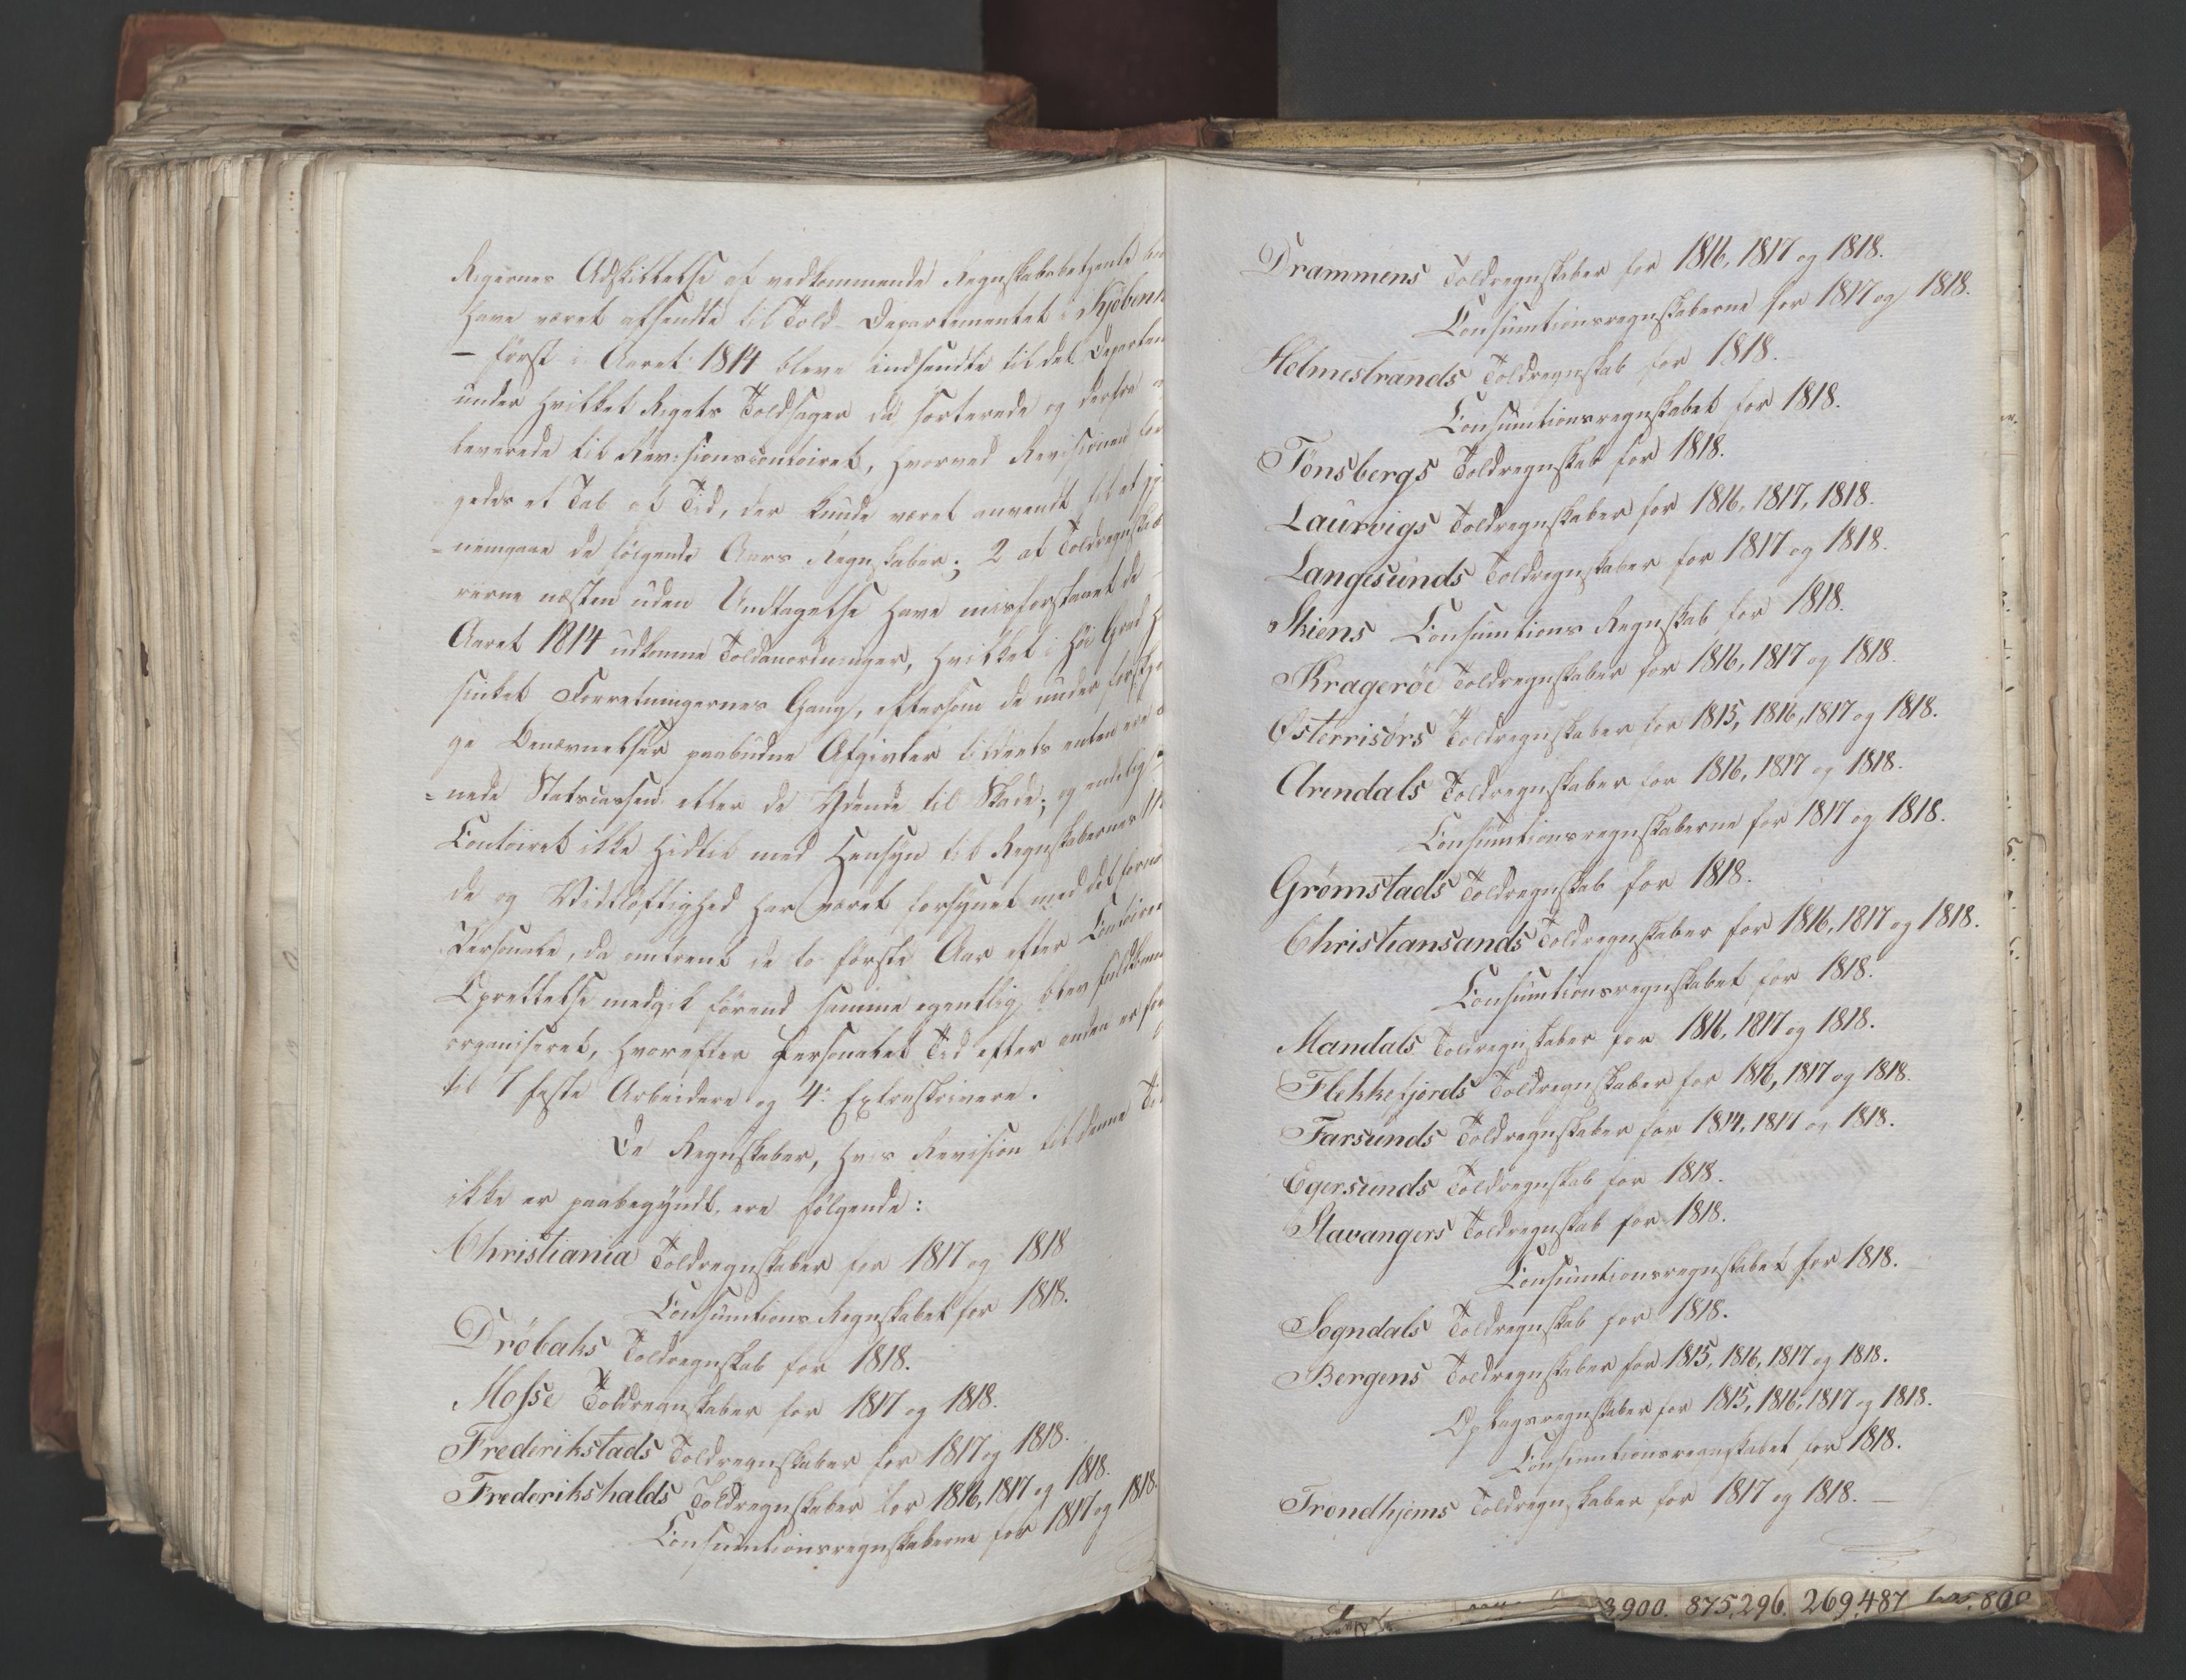 Rigernes Adskillelse af vedkommende Regnskabsbetjente
have været afsendte til Told-Departementet i Kjöbenh
– först i Aaret 1814 bleve indsendte til det Departem
under hvilket Rigets Toldsager da sorterede og derfra
leverede til Revisionscontoiret, hvorved Revisionen
gedes et Tab af Tid, der kunde været anvendt til at gj
=nemgaae de fölgende Aars Regnskaber; 2 at Toldregnskab
rerne næsten uden Undtagelse have misforstaaet de
Aaret 1814 udkomne Toldanordninger, hvilket i höi Grad
sinket Forretningernes Gang, eftersom de under forskje
ge Benævnelser paabudne Afgivter tildeels enten ere
=nede Statscassen eller de Ydende til Skade; og endelig
Contoiret ikke hidtil med Hensyn til Regnskabernes
de og Vidtlöftighed har været forsynet med det fornö
Personale, da omtrent de to förste Aar efter Contoire
Oprettelse medgik förend samme egentlig blev fuldkomm
organiseret, hvorefter Personalet Tid efter anden er
til 7 faste Arbeidere og 4 Extraskrivere.
De Regnskaber, hvis Revision til denne Tid
ikke er paabegyndt, ere fölgende:
Christiania Toldregnskaber for 1817 og 1818
Consumtions Regnskabet for 1818.
Dröbaks Toldregnskab for 1818.
Mosse Toldregnskaber for 1817 og 1818.
Frederikstads Toldregnskaber for 1817 og 1818.
Frederikshalds Toldregnskaber for 1816, 1817 og 1818.
Consumtionsregnskaberne for 1817 og 1818.
Drammens Toldregnskaber for 1816, 1817 og 1818.
Consumtionsregnskaberne for 1817 og 1818.
Holmestrands Toldregnskab for 1818.
Consumtionsregnskabet for 1818.
Tönsbergs Toldregnskab for 1818.
Laurvigs Toldregnskaber for 1816, 1817, 1818.
Langesunds Toldregnskaber for 1817 og 1818.
Skiens Consumtions Regnskab for 1818.
Krageröe Toldregnskaber for 1816, 1817 og 1818.
Österrisörs Toldregnskaber for 1815, 1816, 1817 og 1818.
Arendals Toldregnskaber for 1816, 1817 og 1818.
Consumtionsregnskaberne for 1817 og 1818.
Grömstads Toldregnskab for 1818.
Christiansands Toldregnskaber for 1816, 1817 og 1818.
Consumtionsregnskabet for 1818.
Mandals Toldregnskaber for 1816, 1817 og 1818.
Flekkefjords Toldregnskaber for 1816, 1817 og 1818.
Farsunds Toldregnskaber for 1814, 1817 og 1818.
Egersunds Toldregnskab for 1818.
Stavangers Toldregnskab for 1818.
Consumtionsregnskabet for 1818.
Sogndals Toldregnskab for 1818.
Bergens Toldregnskaber for 1815, 1816, 1817 og 1818.
Oplagsregnskaber for 1815, 1816, 1817 og 1818.
Consumtionsregnskabet for 1818.
Trondhjems Toldregnskaber for 1817 og 1818. –
3,900. 875,296. 269,487